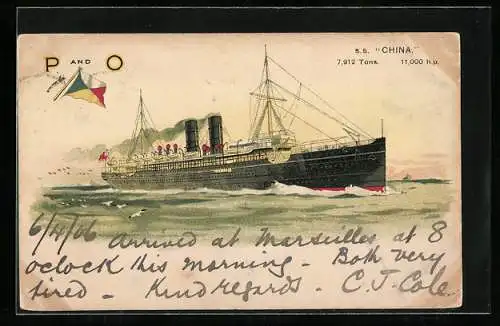 P AND O
S.S. "CHINA."
7,912 Tons. 11,000 h.p.
6/4/06 Arrived at Marseilles at 8
oclock this morning - Both very
tired - Kind regards. C. J. Cole